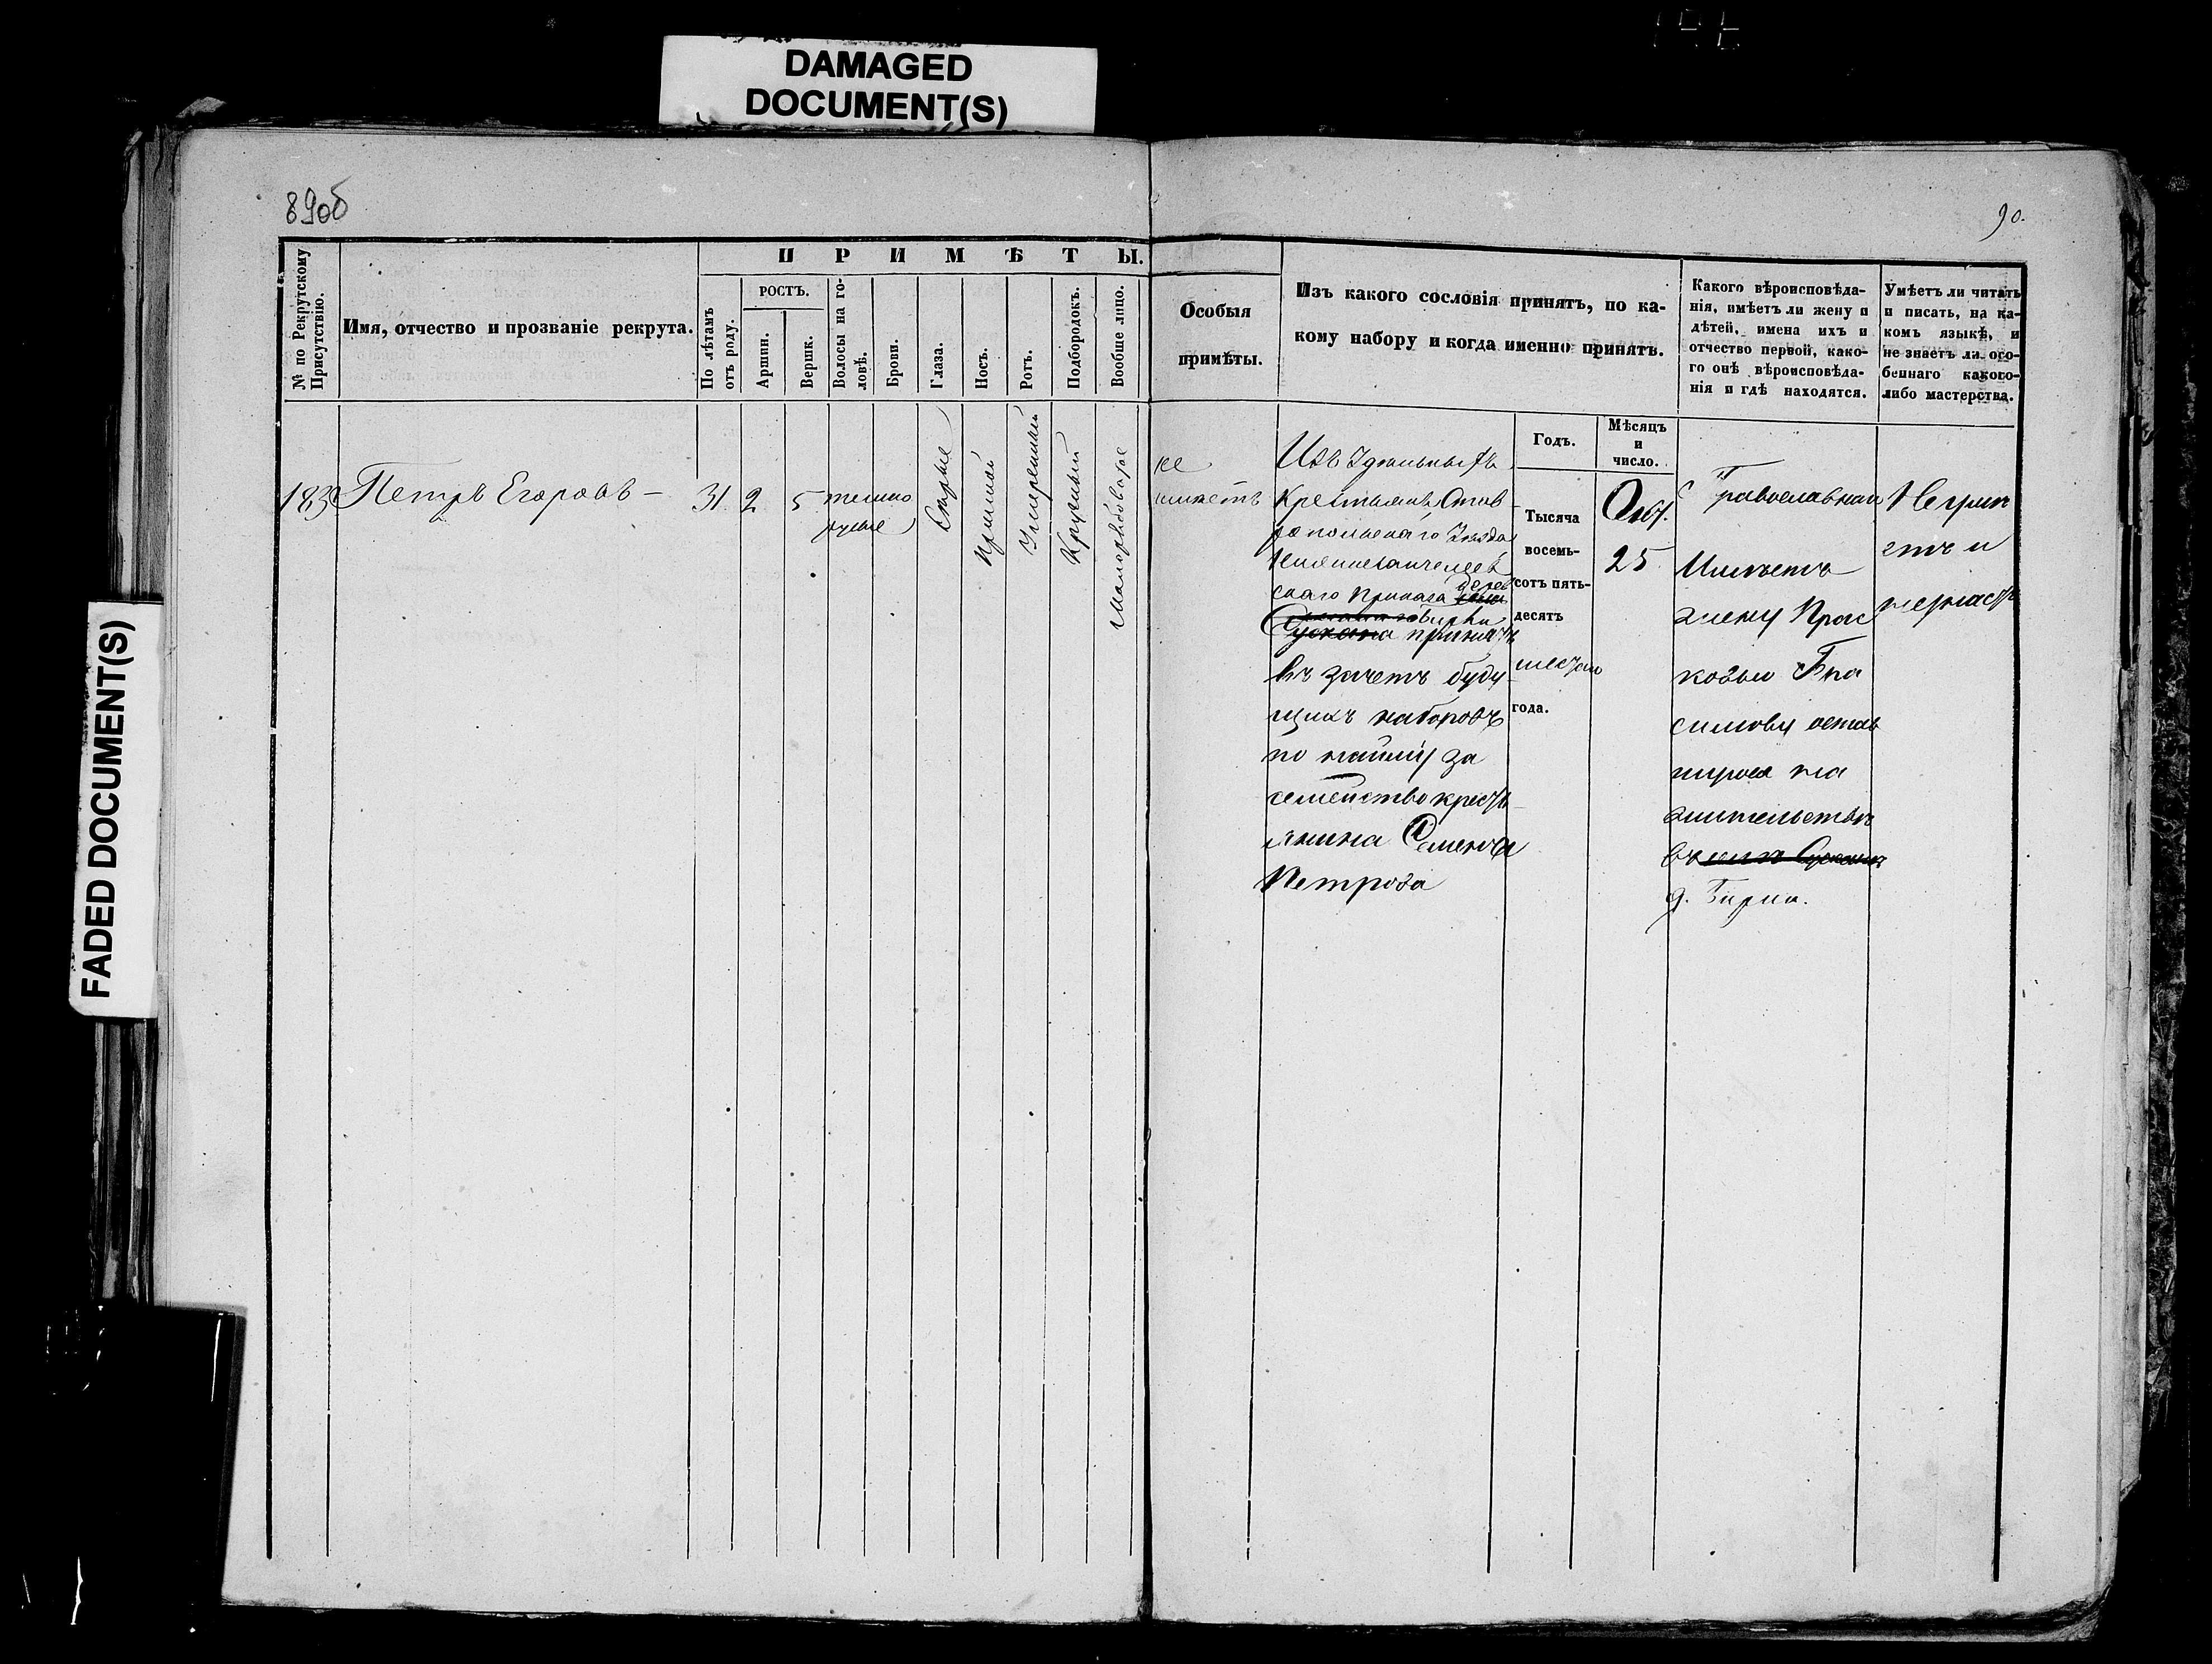 DAMAGED
DOCUMENT(S)
FADED DOCUMENT(S)
89об
90.
№ по Рекрутскому
Присутствію.
Имя, отчество и прозваніе рекрута.
ПРИМѢТЫ.
По лѣтамъ
отъ роду.
РОСТЪ.
Аршин.
Вершк.
Волосы на го-
ловѣ.
Брови.
Глаза.
Носъ.
Ротъ.
Подбородокъ.
Вообще лицо.
Особыя
примѣты.
Изъ какого сословія принятъ, по ка-
кому набору и когда именно принятъ.
Годъ.
Мѣсяцъ
и
число.
Какого вѣроисповѣда-
нія, имѣетъ ли жену и
дѣтей, имена ихъ и
отчество первой, како-
го онѣ вѣроисповѣда-
нія и гдѣ находятся.
Умѣетъ ли читать
и писать, на ка-
комъ языкѣ, и
не знаетъ ли осо-
беннаго какого-
либо мастерства.
183
Петръ Егоровъ
31
2
5
темно
русые
Сѣрые
Прямой
Умеренный
Круглый
не
имѣетъ
Изъ Удельныхъ
Крестьянъ Став
ропольскаго Уезда
скаго Приказа дерев
Бирли
Сускана принятъ
въ зачетъ буду
щихъ наборовъ
по найму за
семейство кресть
янина Семена
Петрова
Тысяча
восемь-
сотъ пять-
десятъ
шестаго
года.
Окт.
25
Православнаго
Имѣетъ
жену Прас
ковью
симову остав
шуюся на
жительствѣ
въ селѣ Сусканѣ
д. Бирла.
Неграм
отъ и